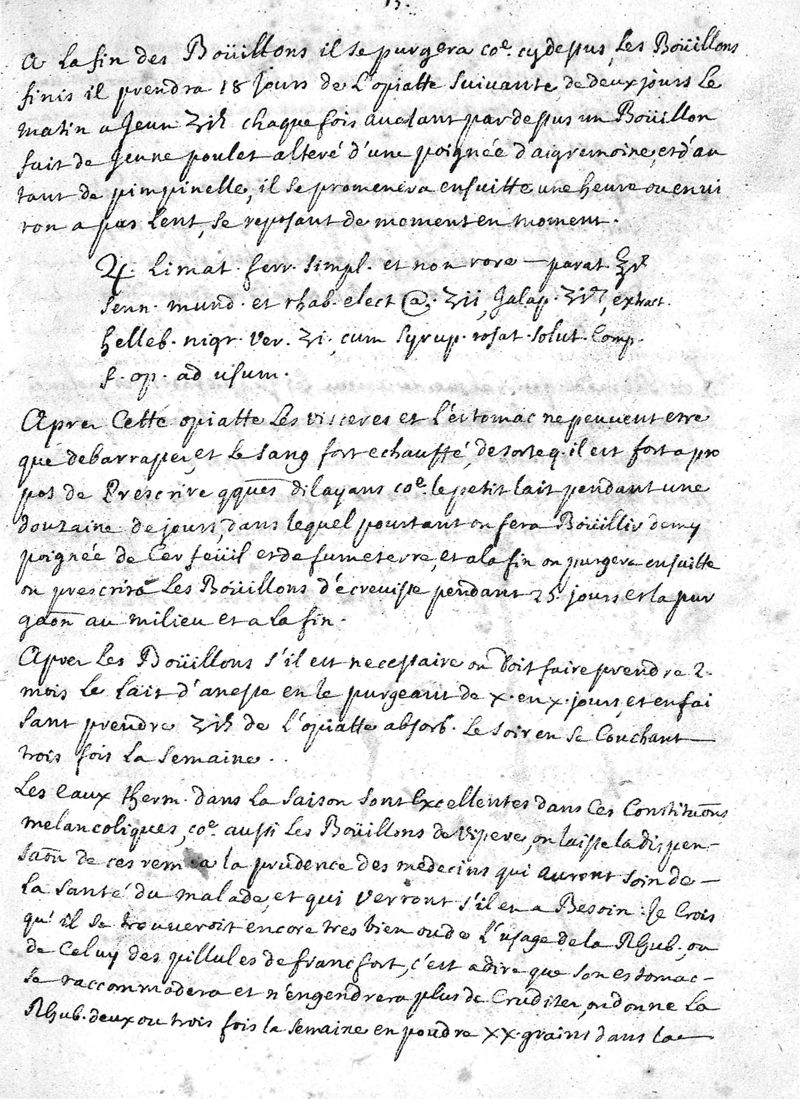 13.
A la fin des Boüillons il se purgera coe. cy dessus, Les Boüillons
finis il prendra 18 Jours de L'opiatte Suivante, de deux jours Le
matin a Jeun ʒiß chaque fois avalant par dessus un Boüillon
fait de Jeune poulet alteré d'une poignée d'aigremoine, et d'au
tant de pimpinelle, il se promenera ensuitte une heure ou envi
ron a pas Lent, se reposant de moment en moment.
♃. Limat. ferr. simpl. et non rore – parat.
senn. mund. et rhab. elect @. ʒii, Jalap. extract.
helleb. nigr. ver. ʒi, cum syrup. rosat. solut. Comp.
f. op. ad usum.
Apres Cette opiatte Les visceres et L'estomac ne peuvent etre
que debarrassez, et Le sang fort echauffé, de sorte q. il est fort a pro
pos de Prescrire qques dilayans coe. le petit lait pendant une
douzaine de jours, dans lequel pourtant on fera Boüillir demy
poignée de Cerfeüil et de fumeterre, et a la fin on purgera ensuitte
on prescrira Les Boüillons d'écrevisse pendant 25 jours et la pur
gaõn au milieu et a la fin.
Apres Les Boüillons s'il est necessaire on doit faire prendre 2.
mois Le Lait d'anesse en le purgeant de x. en x. jours, et en fai
sant prendre ʒiß de L'opiatte absorb. Le soir en se Couchant
trois fois La semaine..
Les eaux therm. dans La saison sont Excellentes dans Ces Constituõns
melancoliques, coe. aussi Les Boüillons de vipere, on laisse la dispen-
saõn de ces rem. a la prudence des medecins qui auront soin de –
La santé du malade, et qui verront s'il en a Besoin: Je Crois
qu'il se trouveroit encore tres bien ou de L'usage de la Rhub., ou
de Celuy des pillules de francfort, c'est a dire que son estomac –
se raccommodera et n'engendrera plus de Cruditez, on donne La
Rhub. deux ou trois fois la semaine en poudre xx. grains dans la –